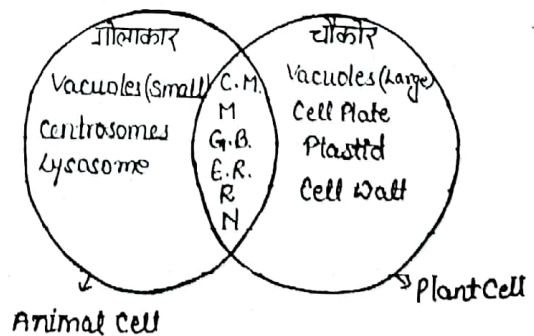 गोलाकार
Vacuoles(small)
Centrosomes
Lysosome
C.M.
M
G.B.
E.R.
R
N
चौकोर
Vacuoles(Large)
Cell Plate
Plastid
Cell Wall
Animal Cell
Plant Cell